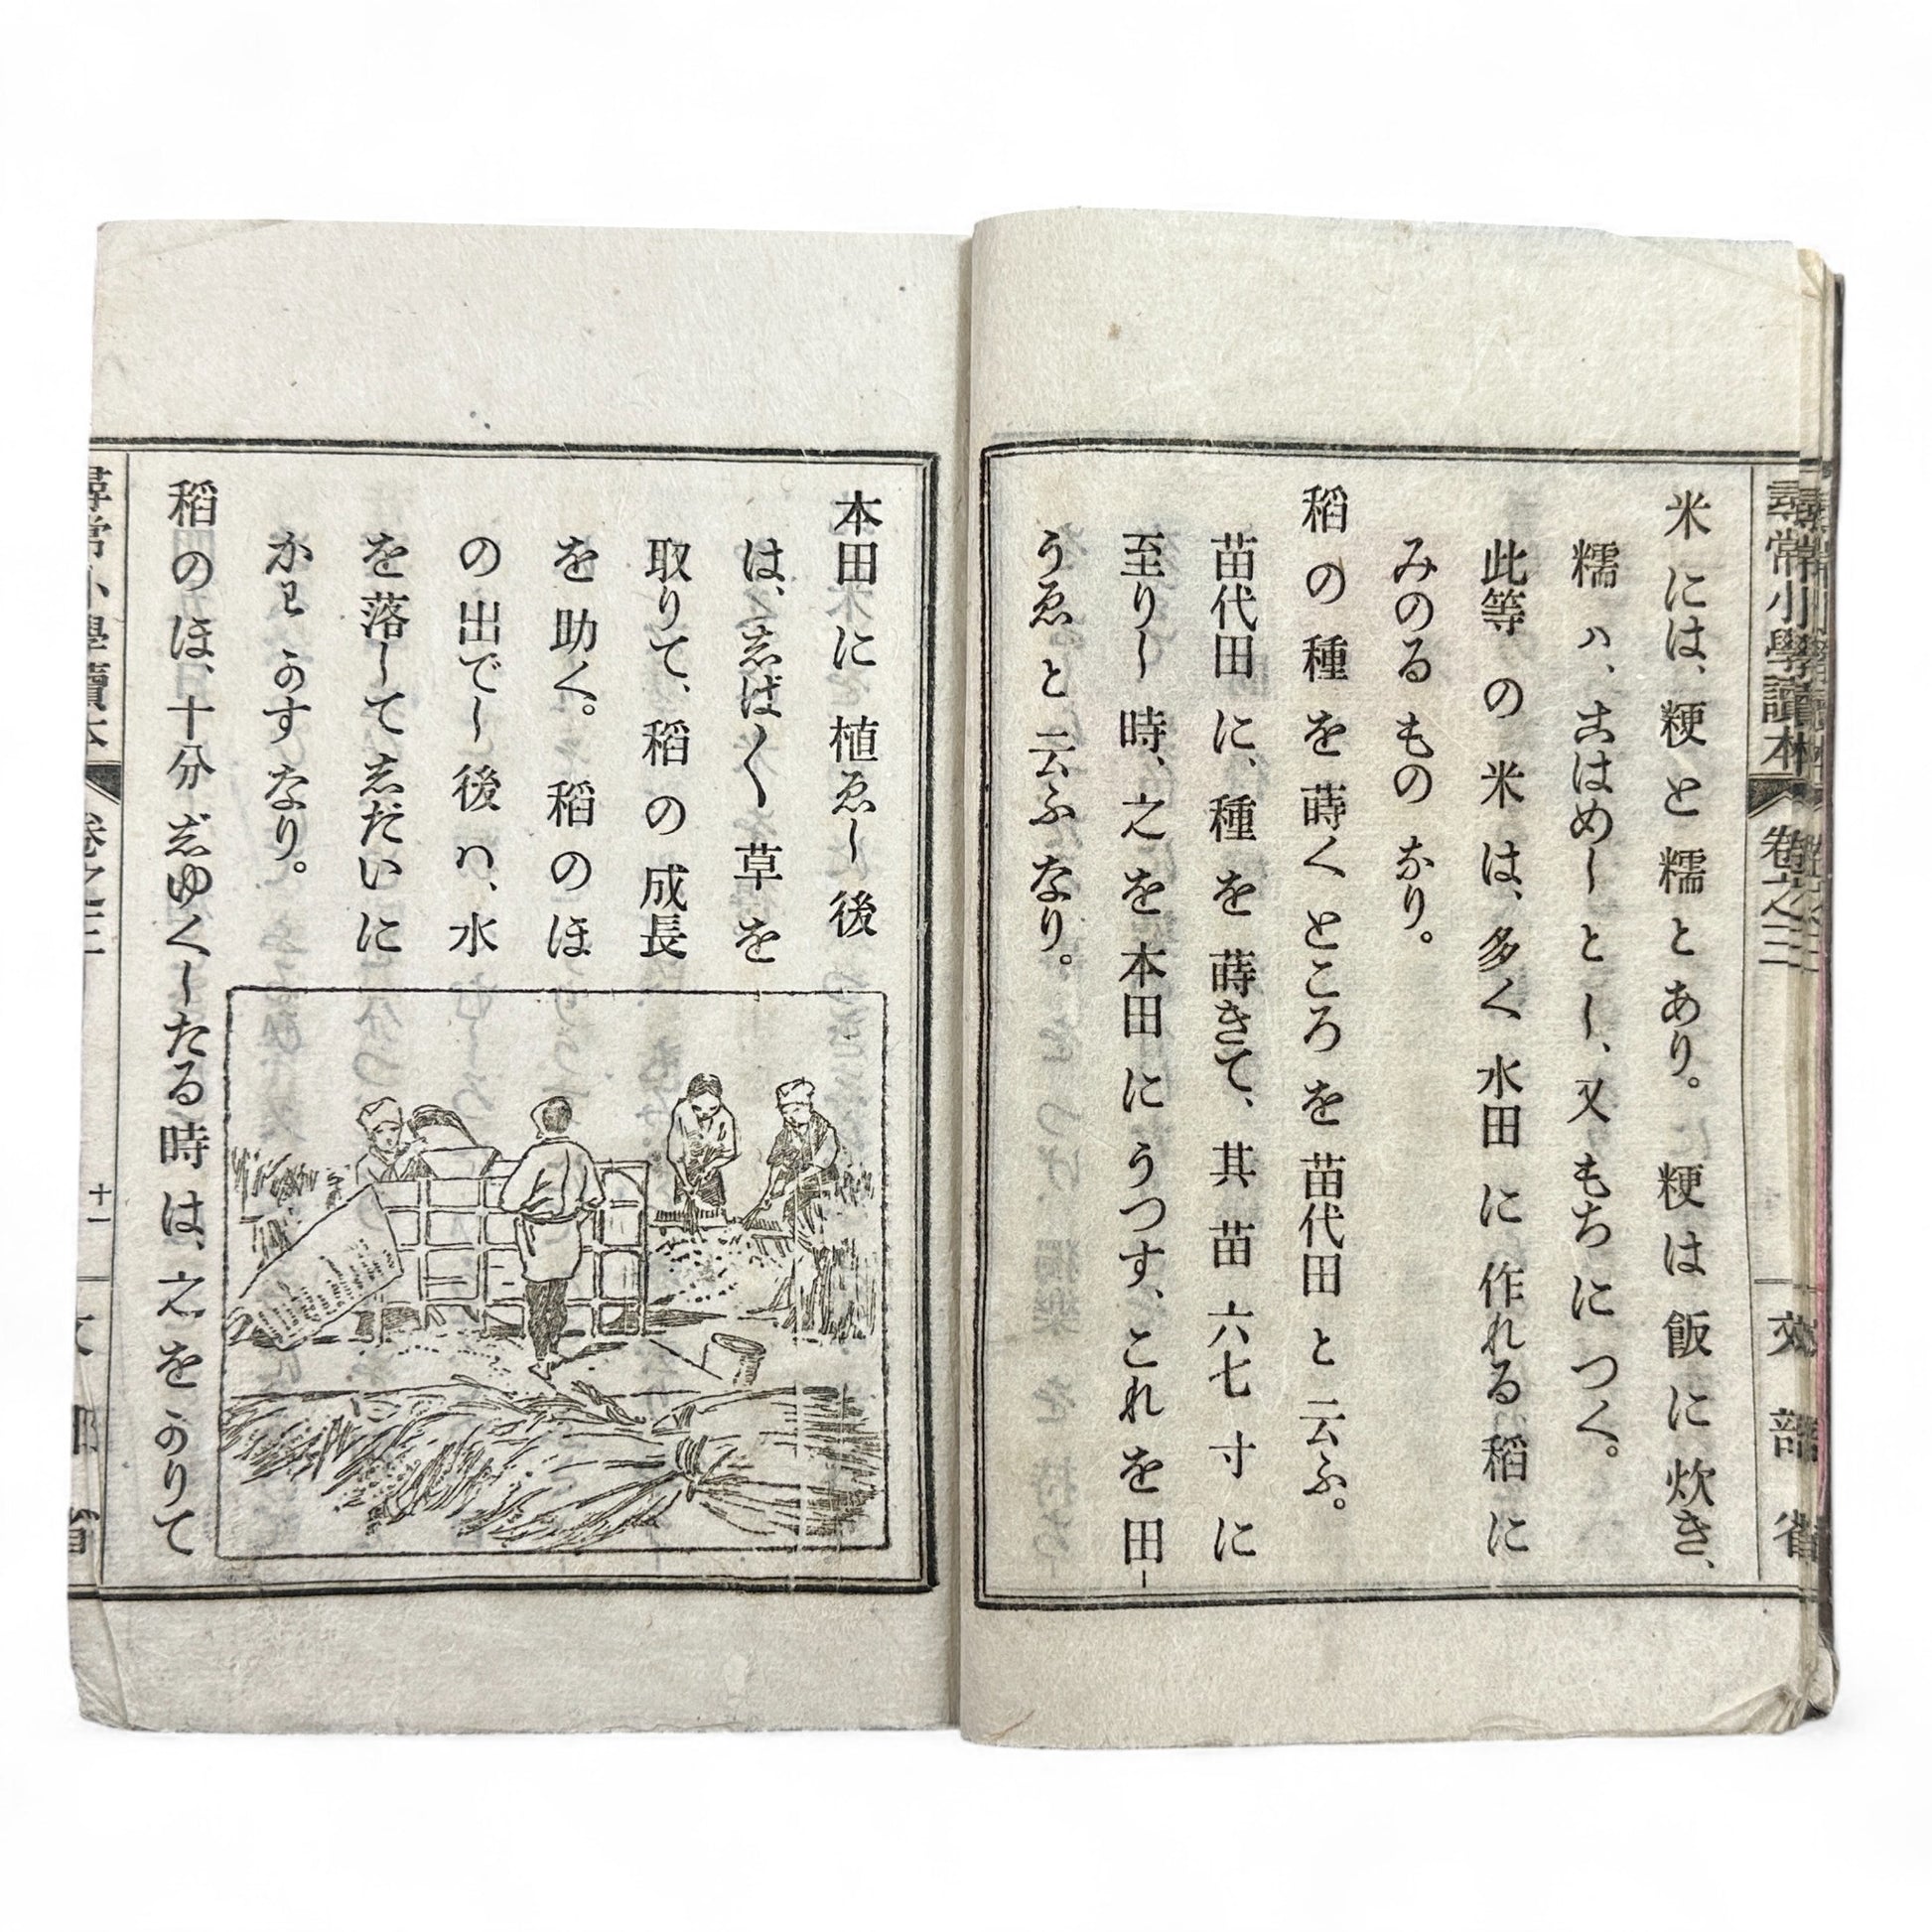 尋常小學讀本 卷之三 文部省
米には、粳と糯とあり。粳は飯に炊き、
糯ハ、こはめしとし、又もちにつく。
此等の米は、多く水田に作れる稻に
みのるものなり。
稻の種を蒔くところを苗代田と云ふ。
苗代田に、種を蒔きて、其苗六七寸に
至りし時、之を本田にうつす、これを田-
うゑと云ふなり。
本田に植ゑし後
は、しば〱草を
取りて、稻の成長
を助く。稻のほ
の出でし後ハ、水
を落してしだいに
かわかすなり。
稻のほ、十分じゆくしたる時は、之をかりて
尋常小學讀本 卷之三 十一 文部省